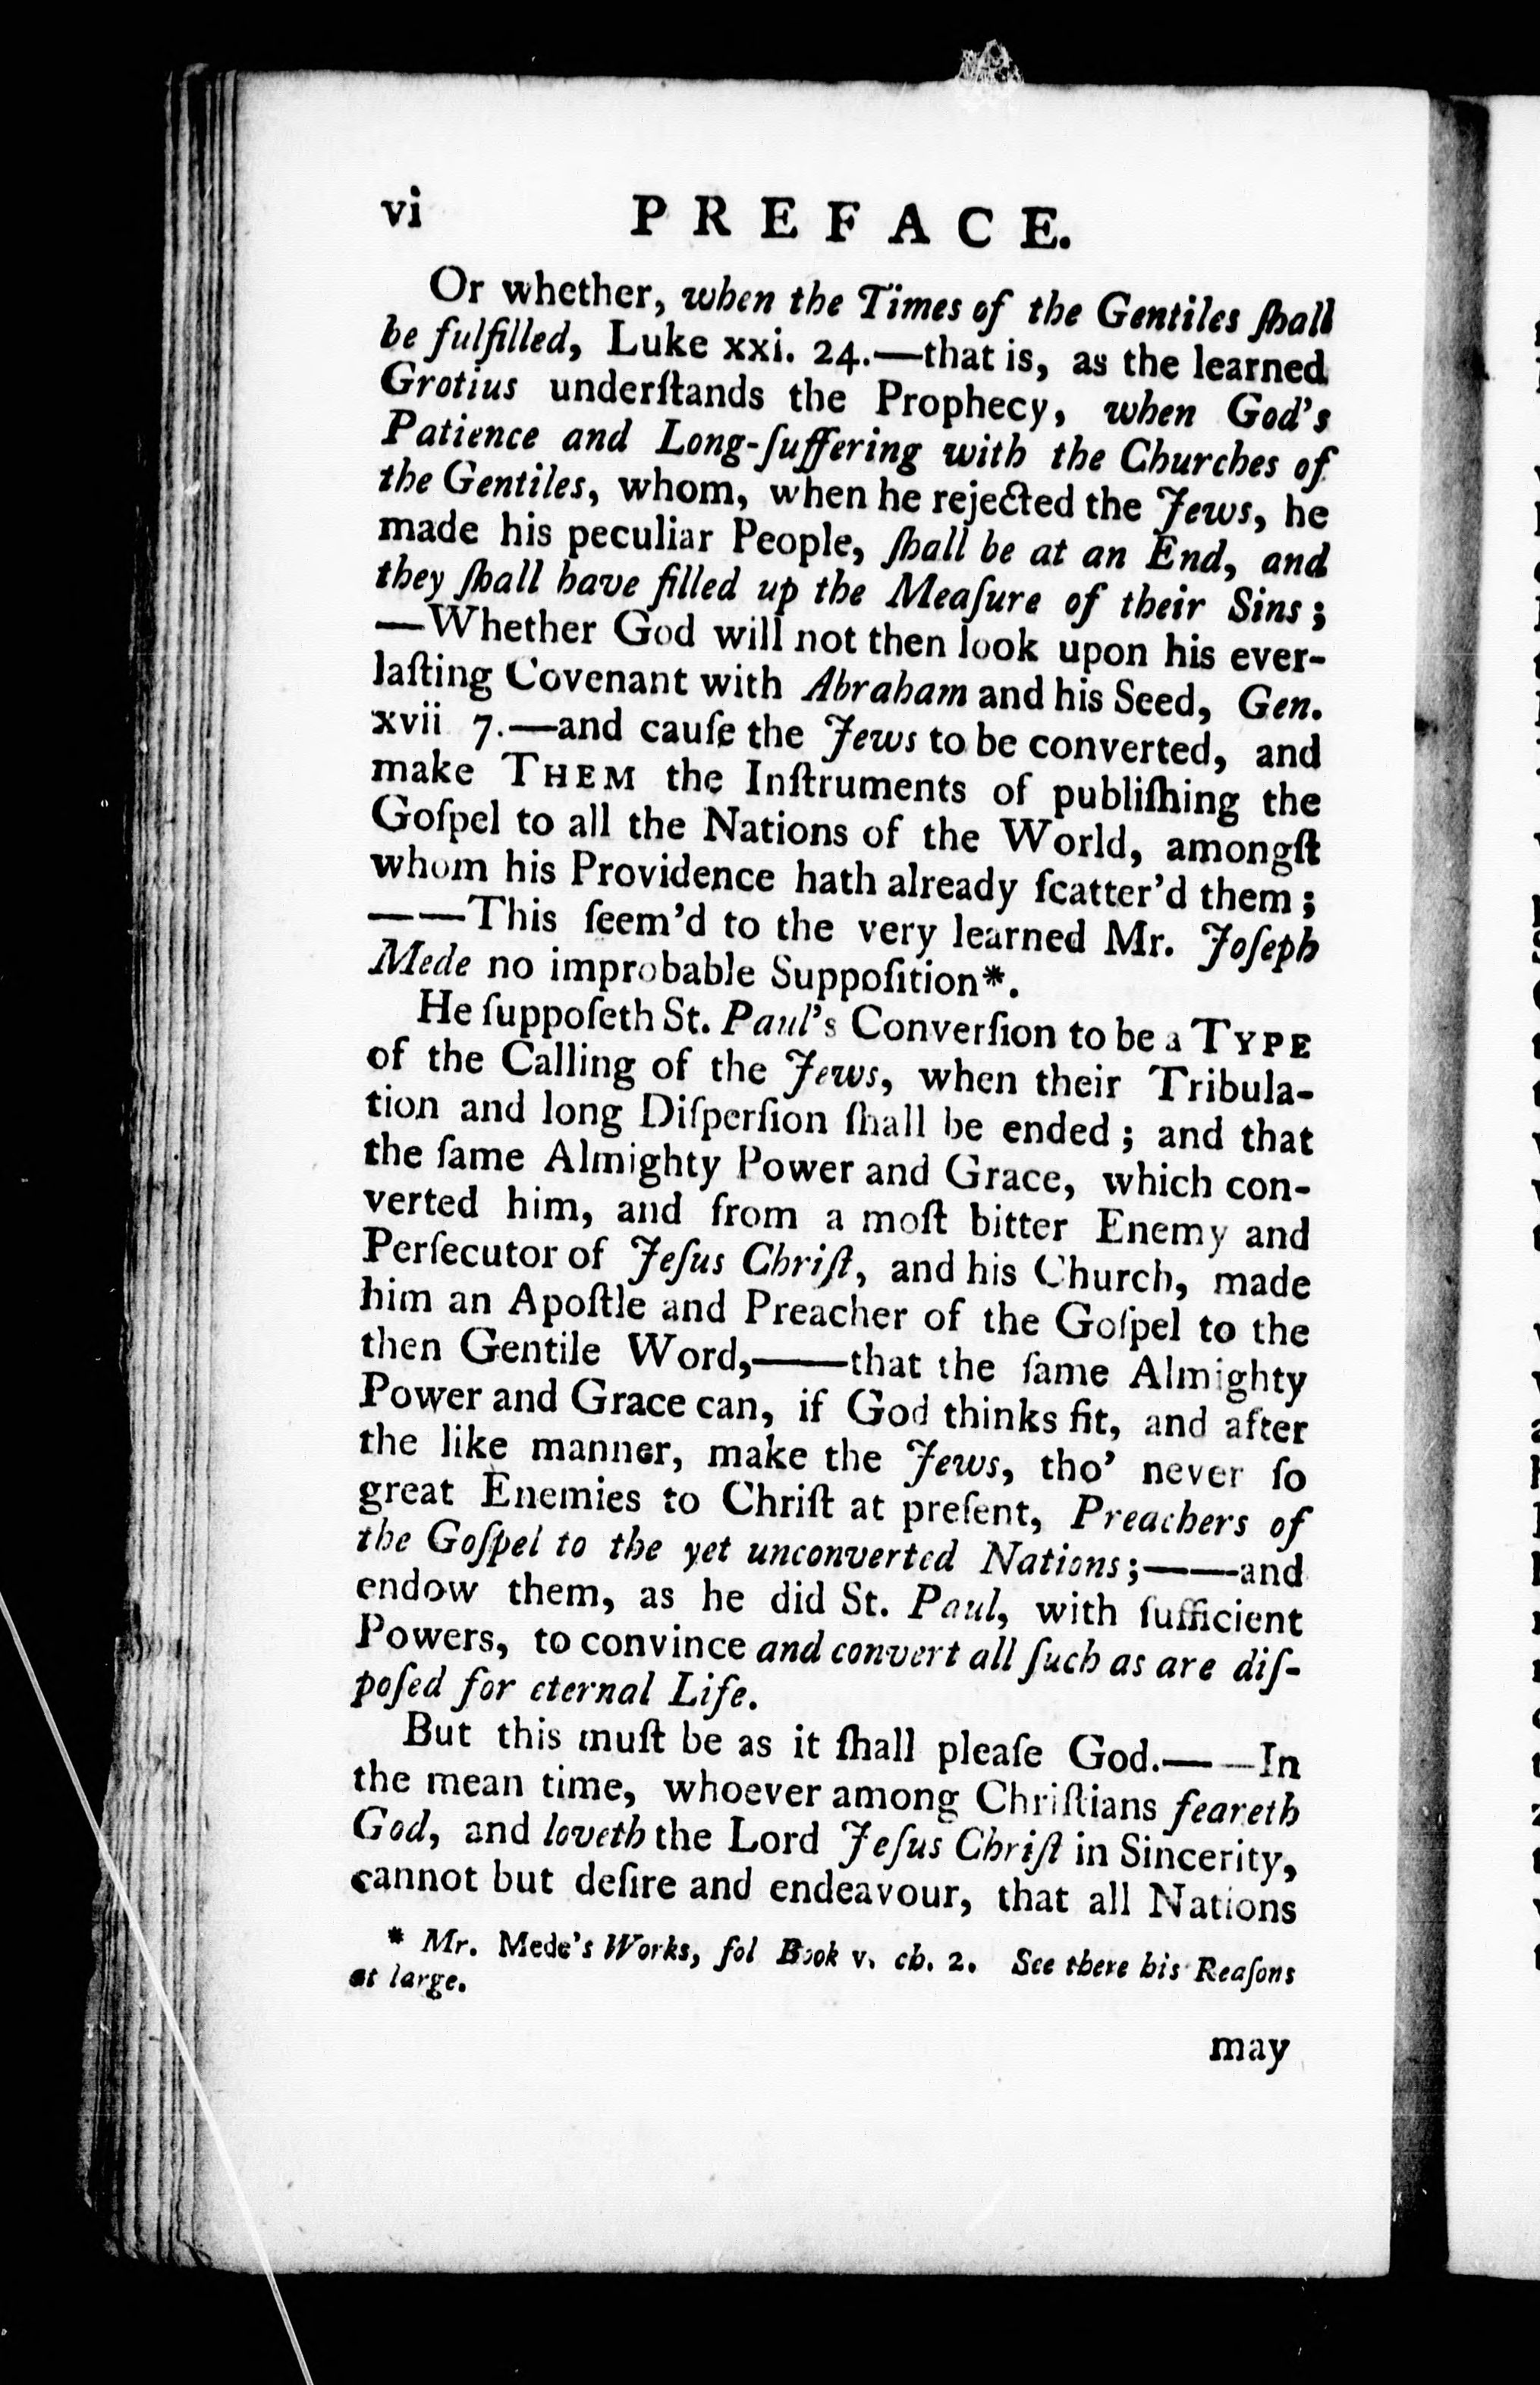 vi PREFACE.
Or whether, when the Times of the Gentiles ſhall
be fulfilled, Luke xxi. 24.—that is, as the learned
Grotius underſtands the Prophecy, when God's
Patience and Long-ſuffering with the Churches of
the Gentiles, whom, when he rejected the Jews, he
made his peculiar People, ſhall be at an End, and
they ſhall have filled up the Meaſure of their Sins;
—Whether God will not then look upon his ever-
laſting Covenant with Abraham and his Seed, Gen.
xvii 7.—and cauſe the Jews to be converted, and
make THEM the Inſtruments of publiſhing the
Goſpel to all the Nations of the World, amongſt
whom his Providence hath already ſcatter'd them;
——This ſeem'd to the very learned Mr. Joſeph
Mede no improbable Suppoſition*.
He ſuppoſeth St. Paul's Converſion to be a TYPE
of the Calling of the Jews, when their Tribula-
tion and long Diſperſion ſhall be ended; and that
the ſame Almighty Power and Grace, which con-
verted him, and from a moſt bitter Enemy and
Perſecutor of Jeſus Chriſt, and his Church, made
him an Apoſtle and Preacher of the Goſpel to the
then Gentile Word,——that the ſame Almighty
Power and Grace can, if God thinks fit, and after
the like manner, make the Jews, tho' never ſo
great Enemies to Chriſt at preſent, Preachers of
the Goſpel to the yet unconverted Nations;——and
endow them, as he did St. Paul, with ſufficient
Powers, to convince and convert all ſuch as are diſ-
poſed for eternal Life.
But this muſt be as it ſhall pleaſe God.——In
the mean time, whoever among Chriſtians feareth
God, and loveth the Lord Jeſus Chriſt in Sincerity,
cannot but deſire and endeavour, that all Nations
* Mr. Mede's Works, fol Book v. ch. 2. See there his Reaſons
at large.
may